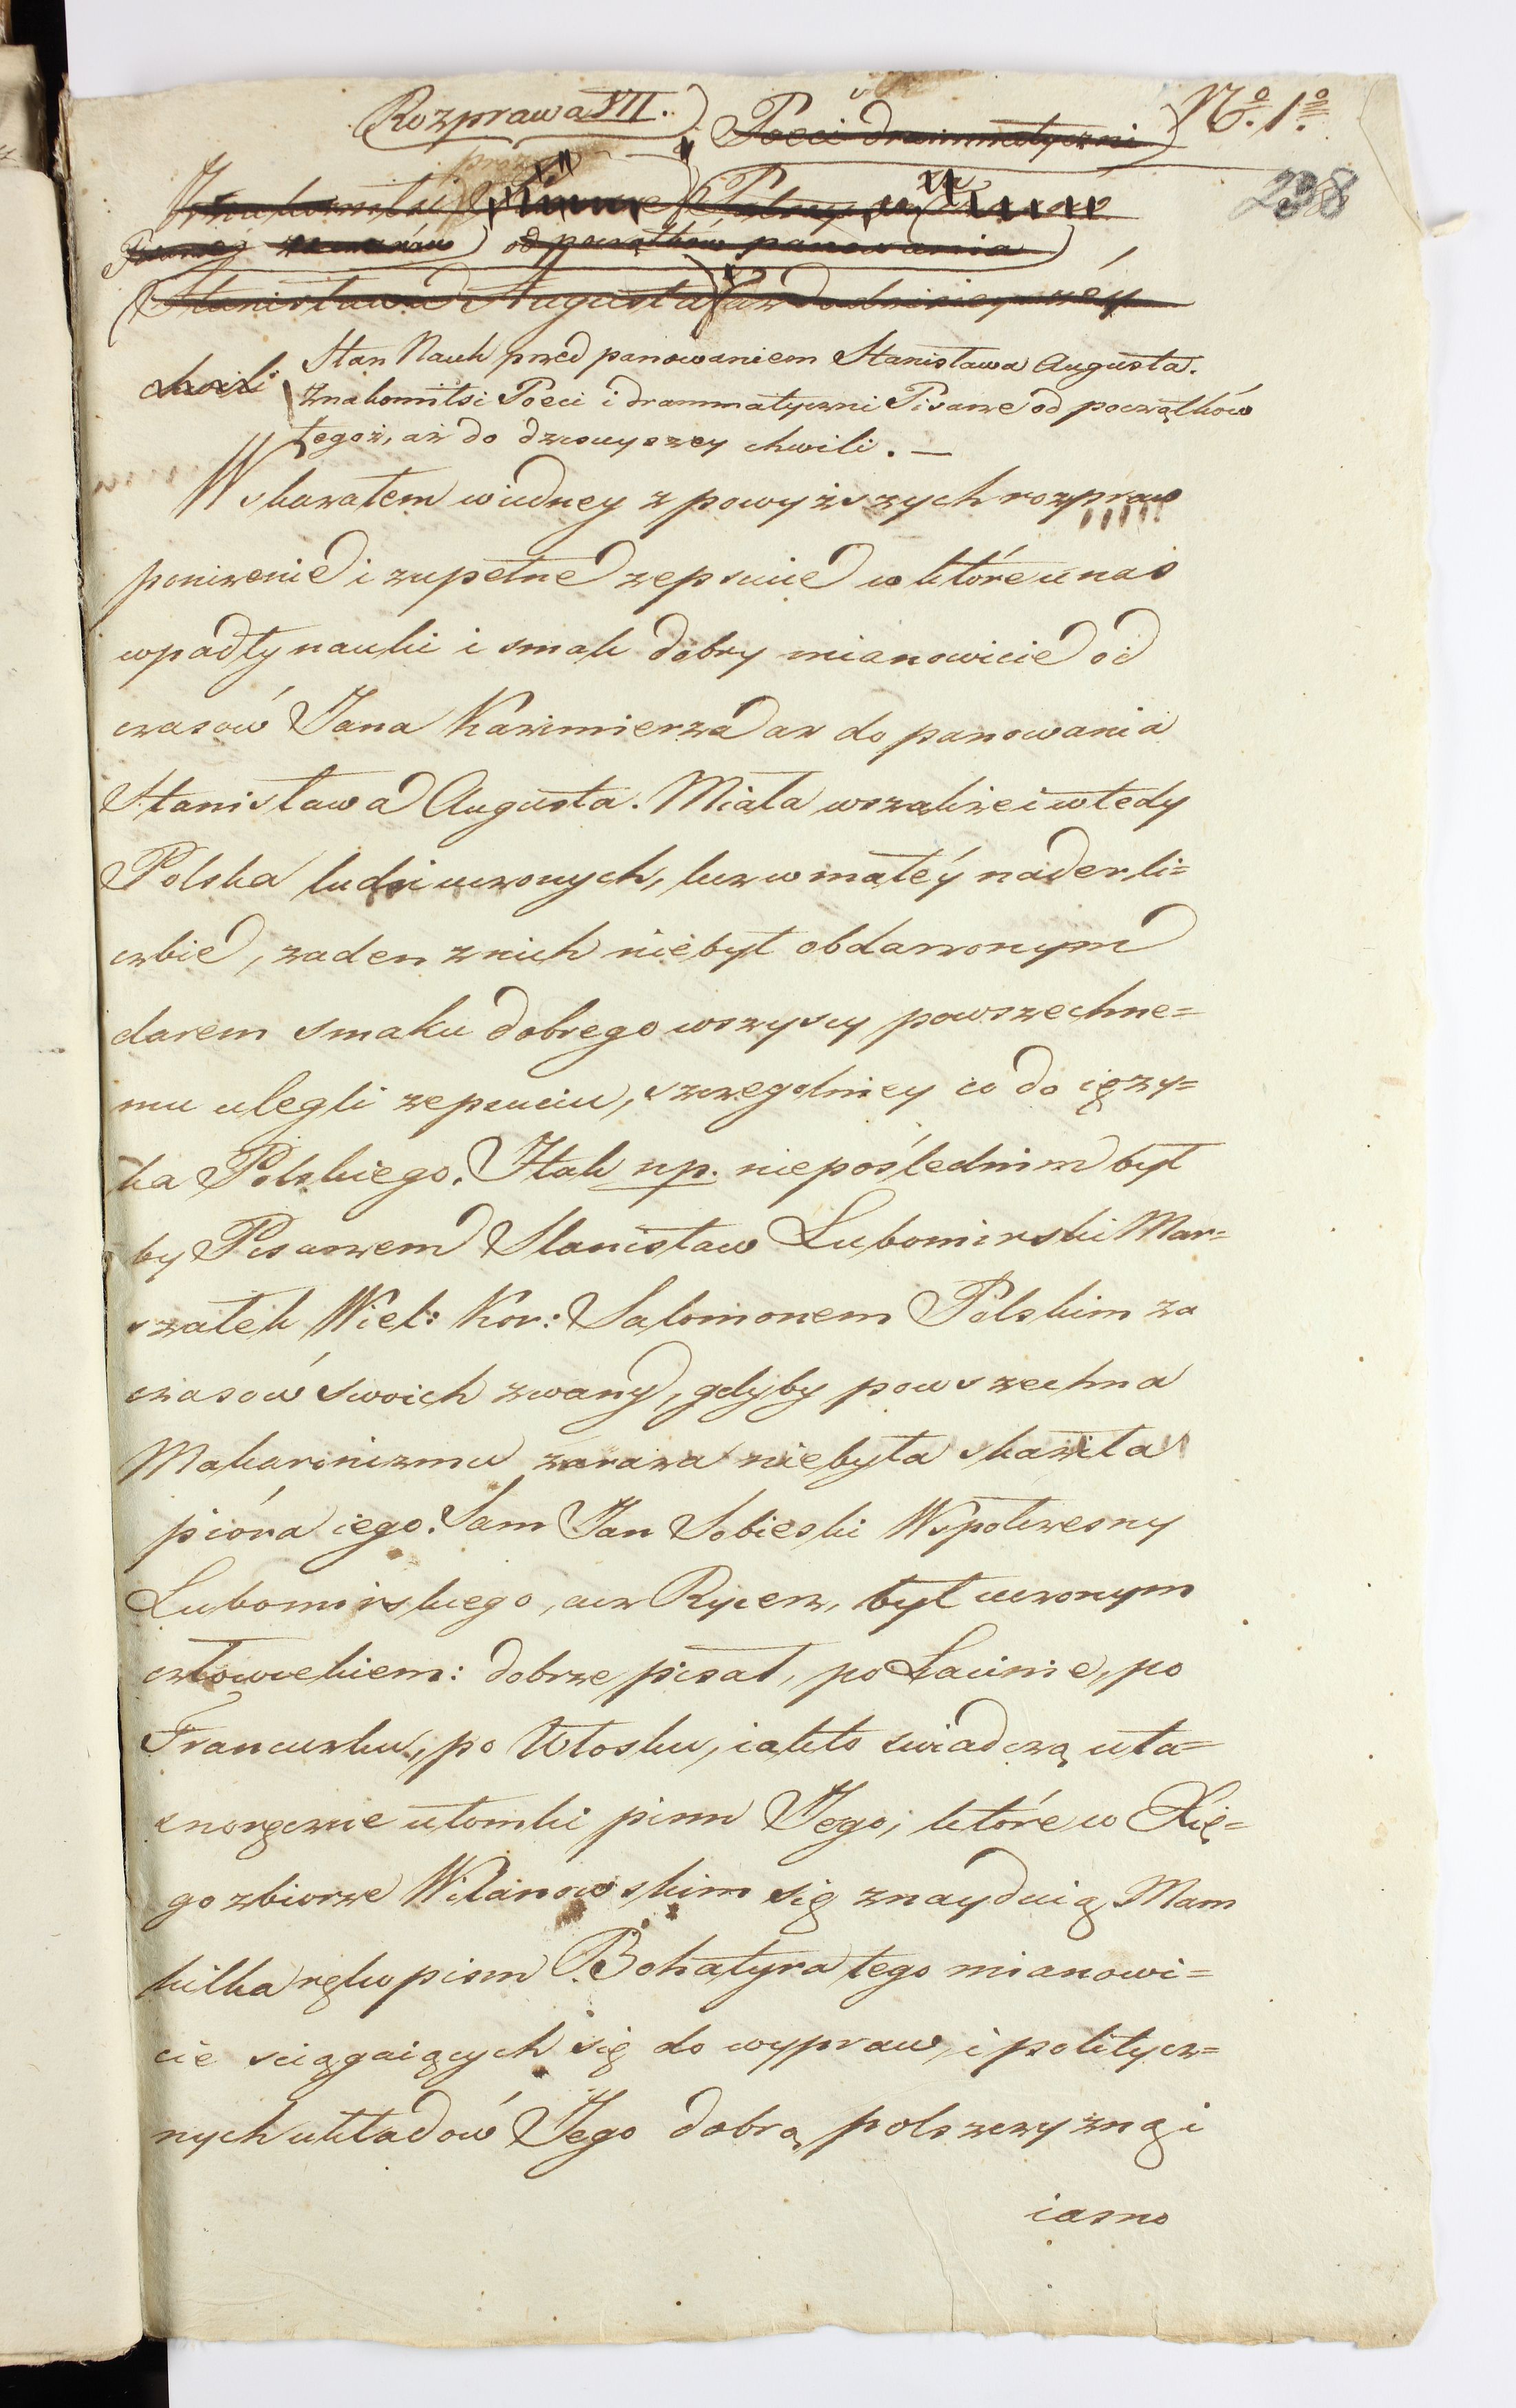 Rozprawa VII. Poeci drammatyczni Nº. 1º.
238
Znakomitsi
Pisarze romansów od początków panowania
Stanisława Augusta aż do dzisieyszéy
chwili Stan Nauk przed panowaniem Stanisława Augusta.
Znakomitsi Poeci i drammatyczni Pisarze od początków
tegoż, aż do dzisiejszey chwili. —
Wskazałem wiedney z powyższych rozpraw
poniżenie i zupełne zepsucie w które u nas
wpadły nauki i smak dobry mianowicie od
czasów Jana Kazimierza aż do panowania
Stanisława Augusta. Miała wszakże i wtedy
Polska ludzi uczonych, lecz w małéy nader li=
czbie, żaden z nich niebył obdarzonym
darem smaku dobrego wszyscy powszechne=
mu ulegli zepsuciu, szczegolniey co do ięzy=
ka Polskiego. I tak np. niepoślednim był
by Pisarzem Stanisław Lubomirski Mar=
szałek Wiel: Kor: Salomonem Polskim za
czasów swoich zwany, gdyby powszechna
Makaronizmu zaraza niebyła skaziła
pióra iego. Sam Jan Sobieski Wspołczesny
Lubomirskiego, acz Rycerz, był uczonym
człowiekiem: dobrze pisał, po Łacinie, po
Francuzku, po Włosku, iak to świadczą wła=
snoręczne ułomki pism Jego, które w Xię=
gozbiorze Wilanowskim się znayduią. Mam
kilka rękopism Bohatyra tego mianowi=
cie sciągaiących się do wypraw, i politycz=
nych układów Jego dobrą polszczyzną i
iasno